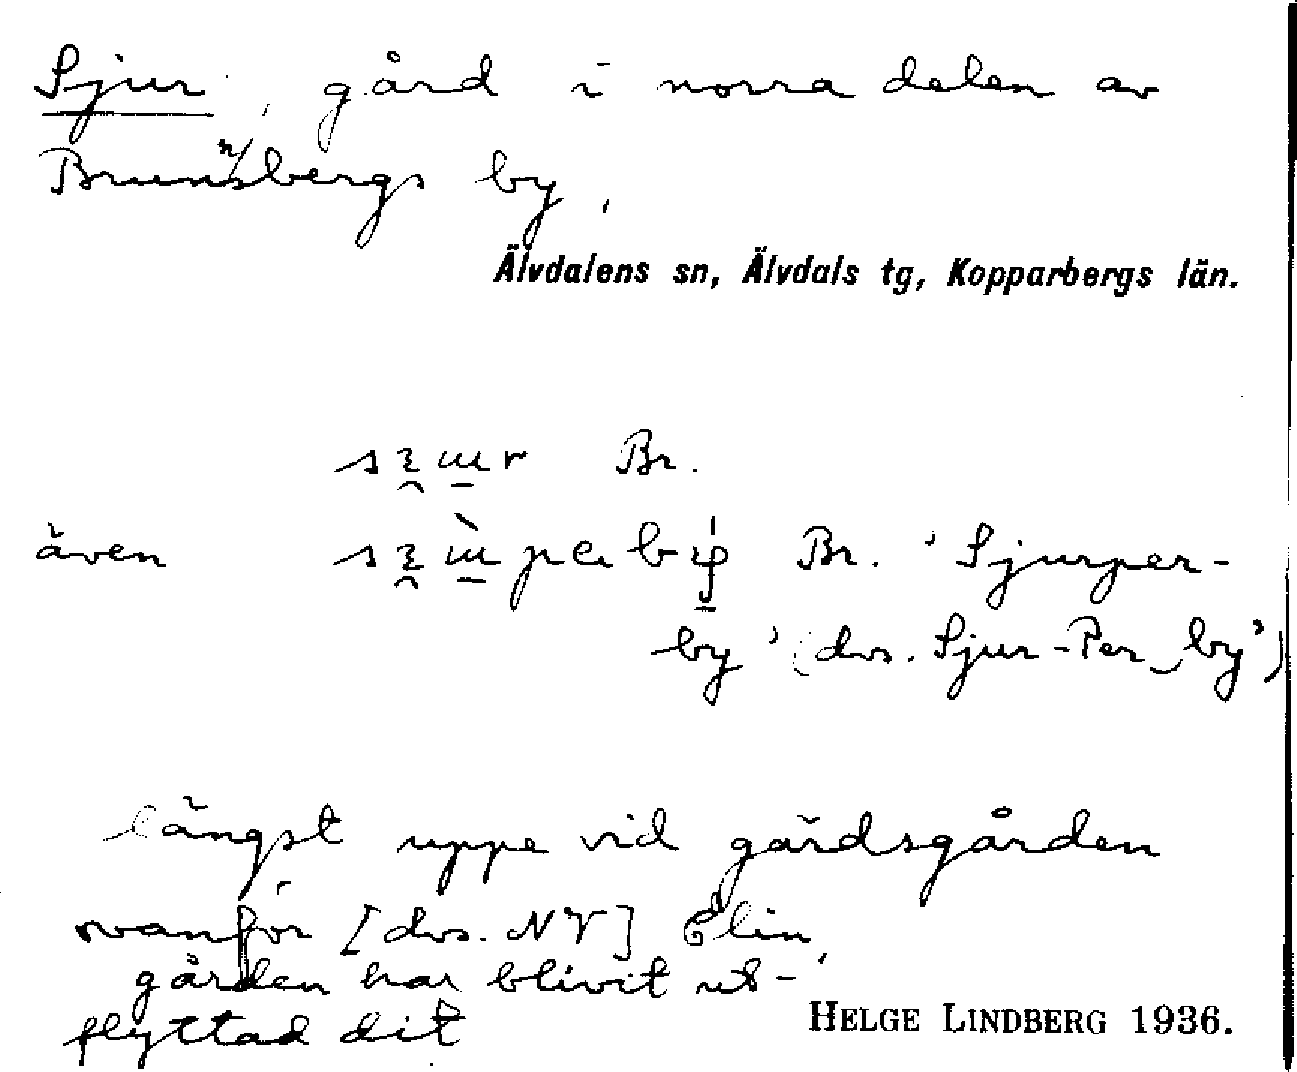 Sjur, gård i norra delen av
Brunnsbergs by,
Älvdalens sn, Älvdals tg, Kopparbergs län.
Br.
även Br. 'Sjurper-
by' (dvs. Sjur-Per by')
längst uppe vid gärdsgården
ovanför [dvs. NV] Elin,
gården har blivit ut-
flyttad dit
HELGE LINDBERG 1936.